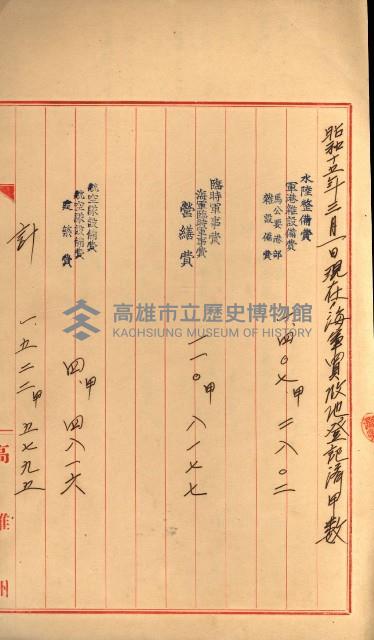 昭和十五年三月一日現在海軍買收地登記済甲数
水陸整備費
軍港雑設備費
馬公要港部
雑設備費
一四〇七甲二八〇二
臨時軍事費
海軍臨時軍事費
營繕費
一一〇甲八一七七
航空隊設備費
航空隊設備費
建築費
四甲四八一六
計 一、五二二甲五七九五
高雄州
高雄市立歷史博物館
KAOHSIUNG MUSEUM OF HISTORY